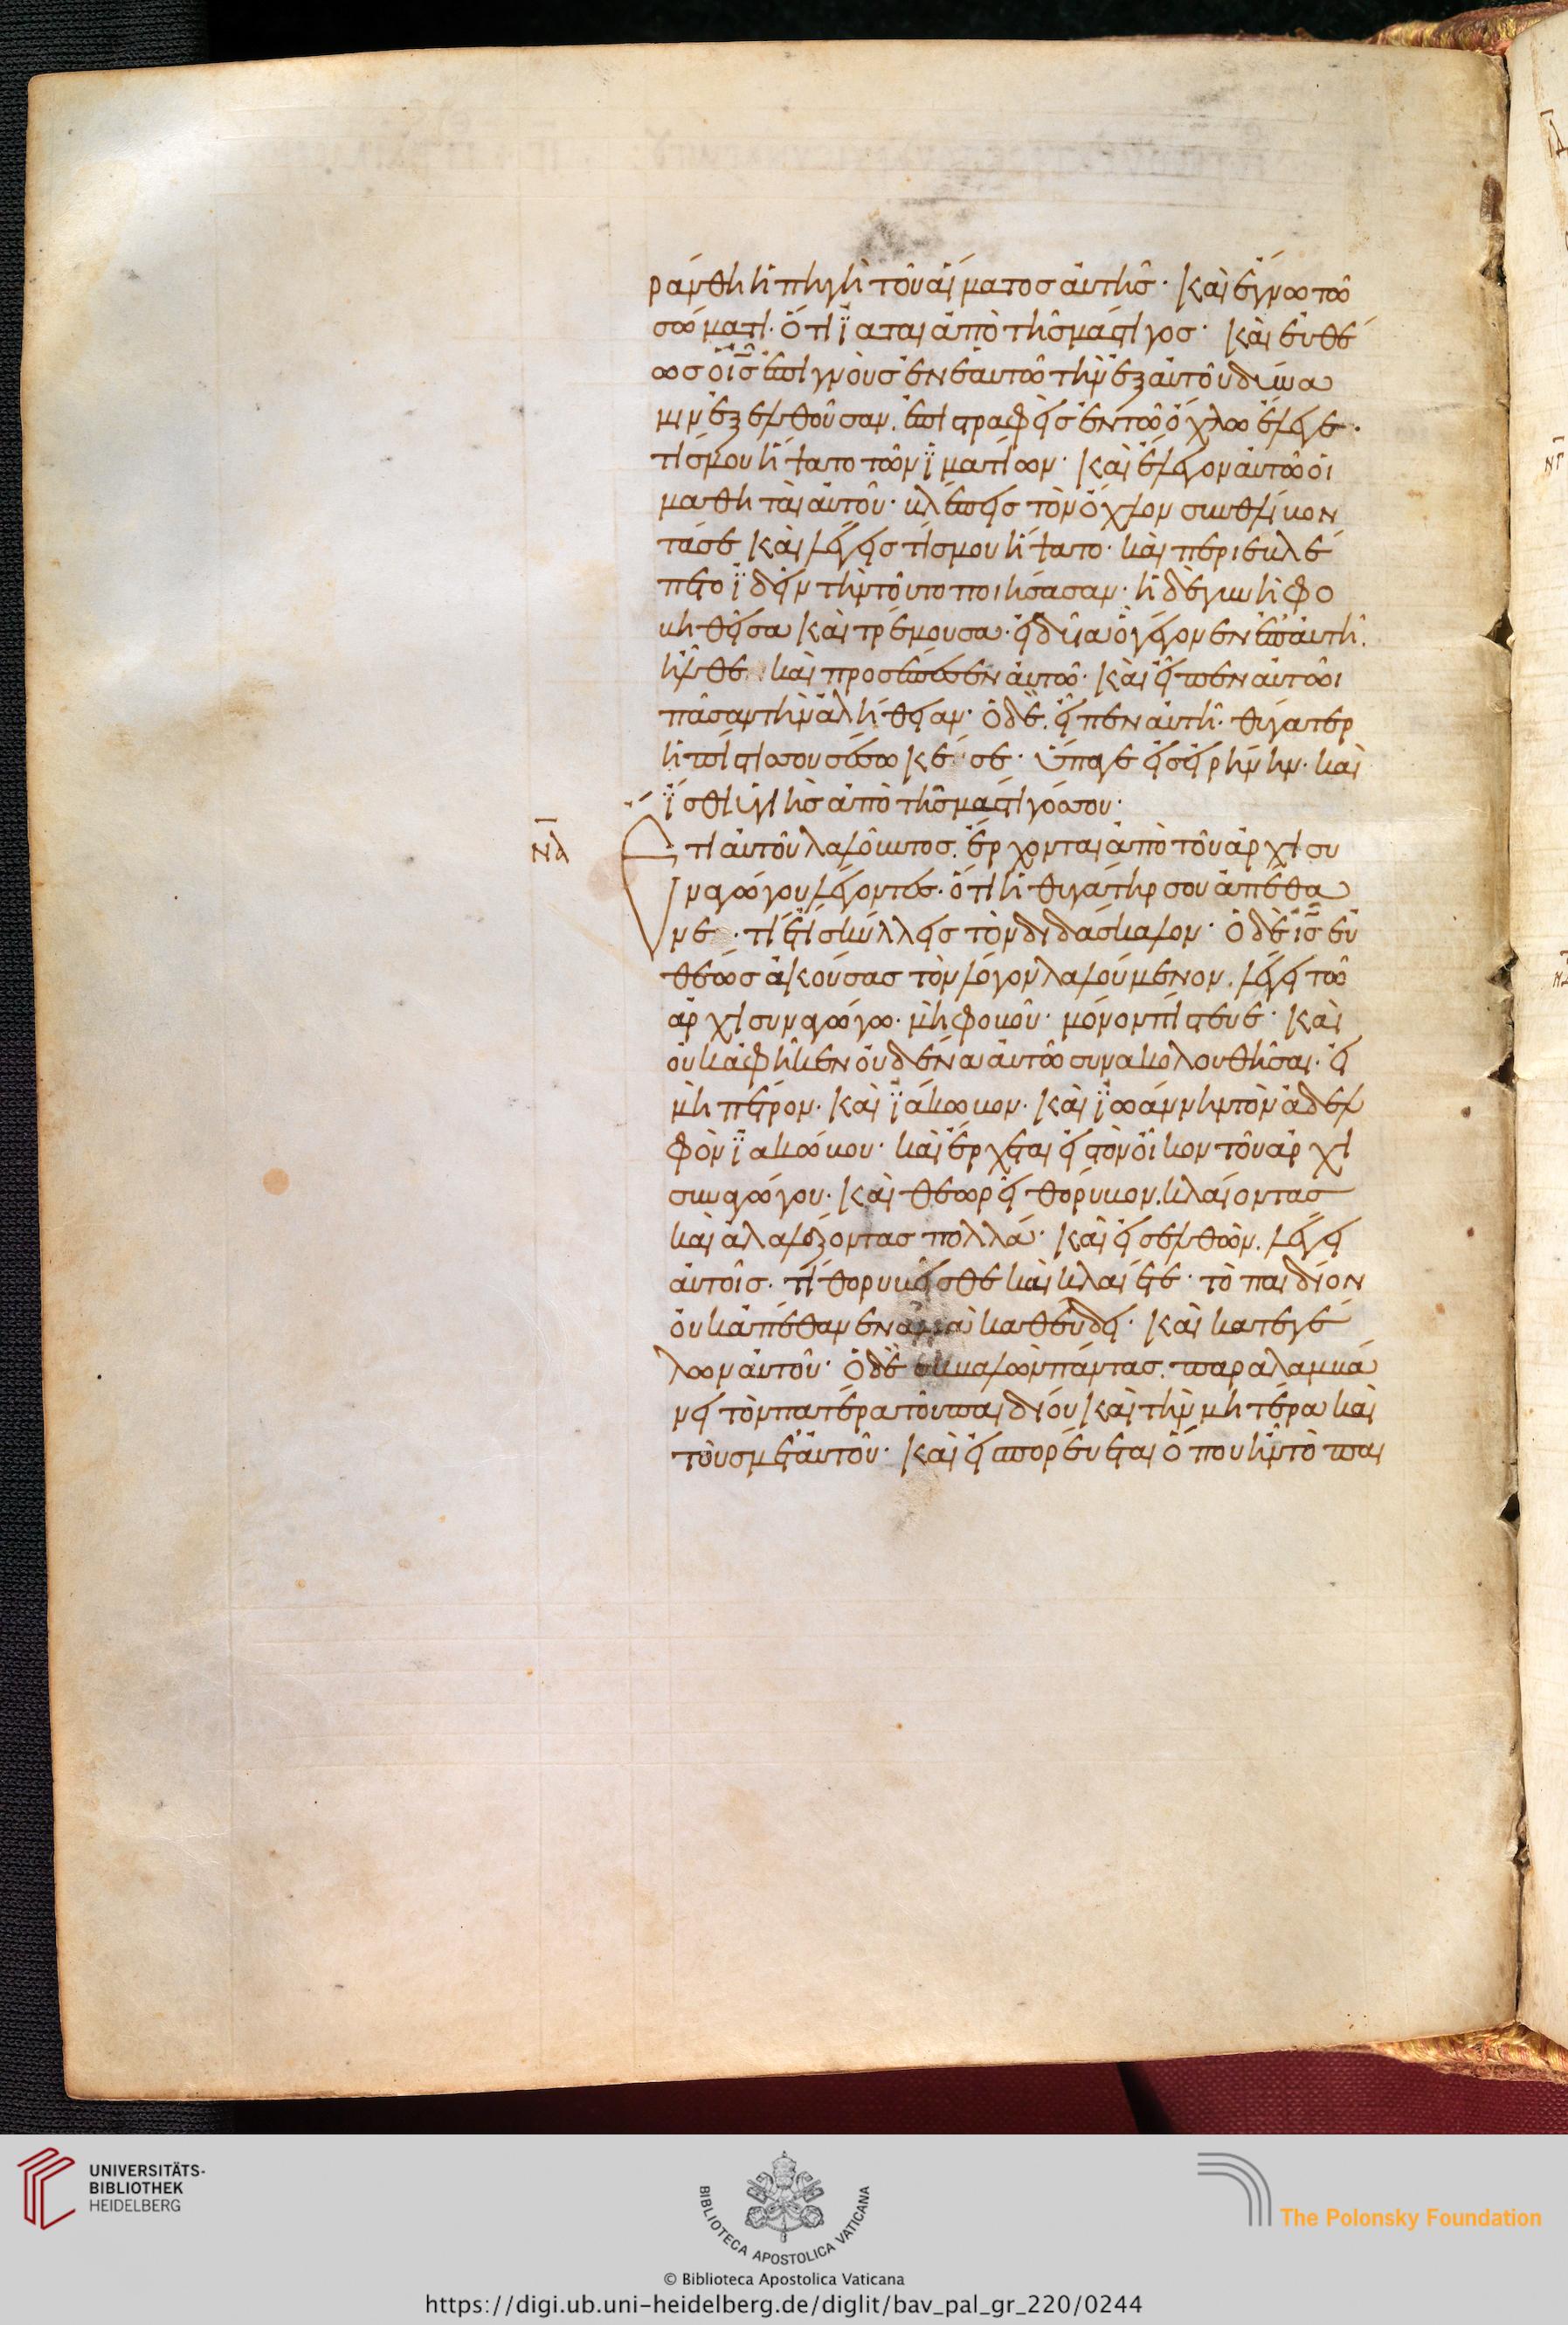 ράνθη ἡ πηγὴ τοῦ αἵματοσ αὐτῆσ· Καὶ ἔγνω τῶ
σώματι· ὅτι ϊαται ἀπὸ τῆσ μάστιγοσ· Καὶ ἐυθέ
ωσ ὁ ι̅σ̅ ἐπιγνοὺσ ἐν ἑαυτῶ τὴν ἐξ αὐτοῦ δύνα
μιν ἐξελθοῦσαν. ἐπιστραφεὶσ ἐν τῶ ὄχλω ἔλεγε·
τίσ μου ἥψατο τῶν ϊματίων· Καὶ ἔλεγον αὐτῶ οἱ
μαθηταὶ αὐτοῦ· βλέπεισ τὸν ὄχλον συνθλίβον
τά σε Καὶ λέγεισ τίσ μου ἥψατο· καὶ περιεβλέ
πετο ϊδεῖν τὴν τοῦτο ποιήσασαν· ἡ δὲ γυνὴ φο
βηθεῖσα Καὶ τρέμουσα· εἰδυῖα ὃ γέγονεν ἐπ' αὐτῆ.
ἦλθε καὶ προσέπεσεν αὐτῶ· Καὶ εἶπεν αὐτῶι
πᾶσαν τὴν ἀλήθειαν· Ὁ δὲ. εἶπεν αὐτῆ· θύγατερ
ἡ πίστισ σου σέσωκέ σε· ὕπαγε εἰσ εἰρήνην· καὶ
ϊσθι ὑγιὴσ ἀπὸ τῆσ μάστιγόσ σου·
ΝΔ
Ἔτι αὐτοῦ λαλοῦντοσ. ἔρχονται ἀπὸ τοῦ ἀρχισυ
ναγώγου λέγοντεσ· ὅτι ἡ θυγάτηρ σου ἀπέθα
νε· τί ἔτι σκύλλεισ τὸν διδάσκαλον· Ὁ δὲ ι̅σ̅ εὐ
θέωσ ἀκούσασ τὸν λόγον λαλούμενον. λέγει τῶ
ἀρχισυναγώγω· μὴ φοβοῦ· μόνον πίστευε· Καὶ
οὐκ ἀφῆκεν οὐδένα αὐτῶ συνακολουθῆσαι· εἰ
μὴ πέτρον· Καὶ ϊάκωβον· Καὶ ϊωάννην τὸν ἀδελ
φὸν ϊακώβου· καὶ ἔρχεται εἰσ τὸν οἶκον τοῦ ἀρχι
συναγώγου· Καὶ θεωρεῖ θόρυβον. κλαίοντασ
καὶ ἀλαλάζοντασ πολλά· Καὶ εἰσελθὼν. λέγει
αὐτοῖσ· τί θορυβεῖσθε καὶ κλαίετε· τὸ παιδίον
οὐκ ἀπέθανεν ἀλλὰ καθεύδει· Καὶ κατεγέ
λων αὐτοῦ· Ὁ δὲ ἐκβαλὼν πάντασ. παραλαμβά
νει τὸν πατέρα τοῦ παιδίου Καὶ τὴν μητέρα καὶ
τοὺσ μετ' αὐτοῦ· Καὶ εἰσπορέυεται ὅπου ἦν τὸ παι
UNIVERSITÄTS-
BIBLIOTHEK
HEIDELBERG
BIBLIOTECA APOSTOLICA VATICANA
© Biblioteca Apostolica Vaticana
The Polonsky Foundation
https://digi.ub.uni-heidelberg.de/diglit/bav_pal_gr_220/0244